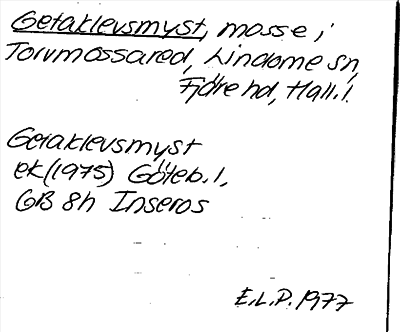 Getaklevsmyst, mosse i
Torvmossared, Lindome sn,
Fjäre hd, Hall.l.
Getaklevsmyst
ek (1975) Göteb. l,
GB 8h Inseros
E.L.P. 1977